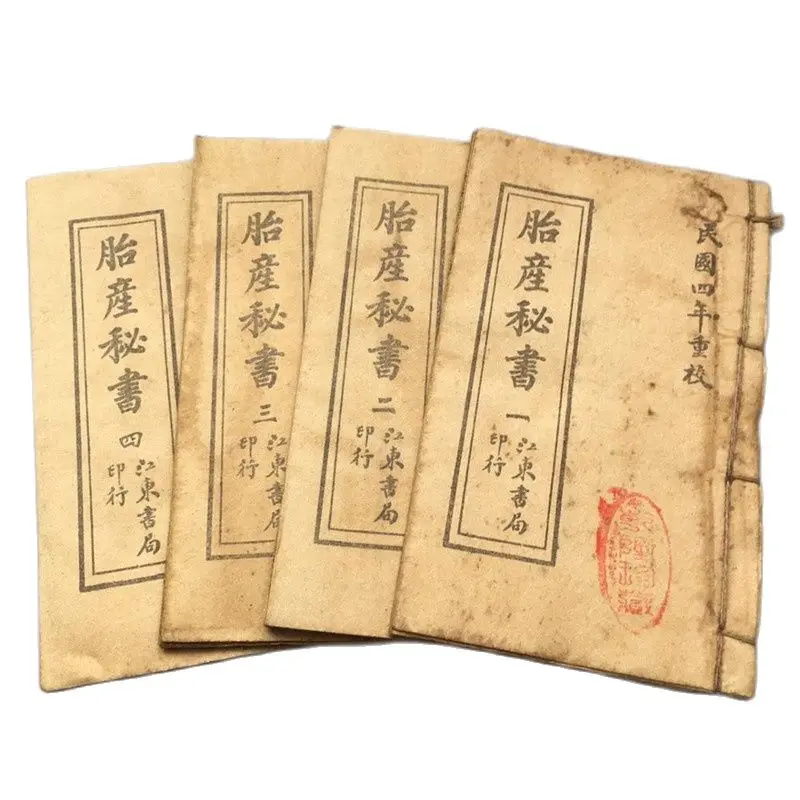 民國四年重校
胎產秘書 一
江東書局
印行
胎產秘書 二
江東書局
印行
胎產秘書 三
江東書局
印行
胎產秘書 四
江東書局
印行